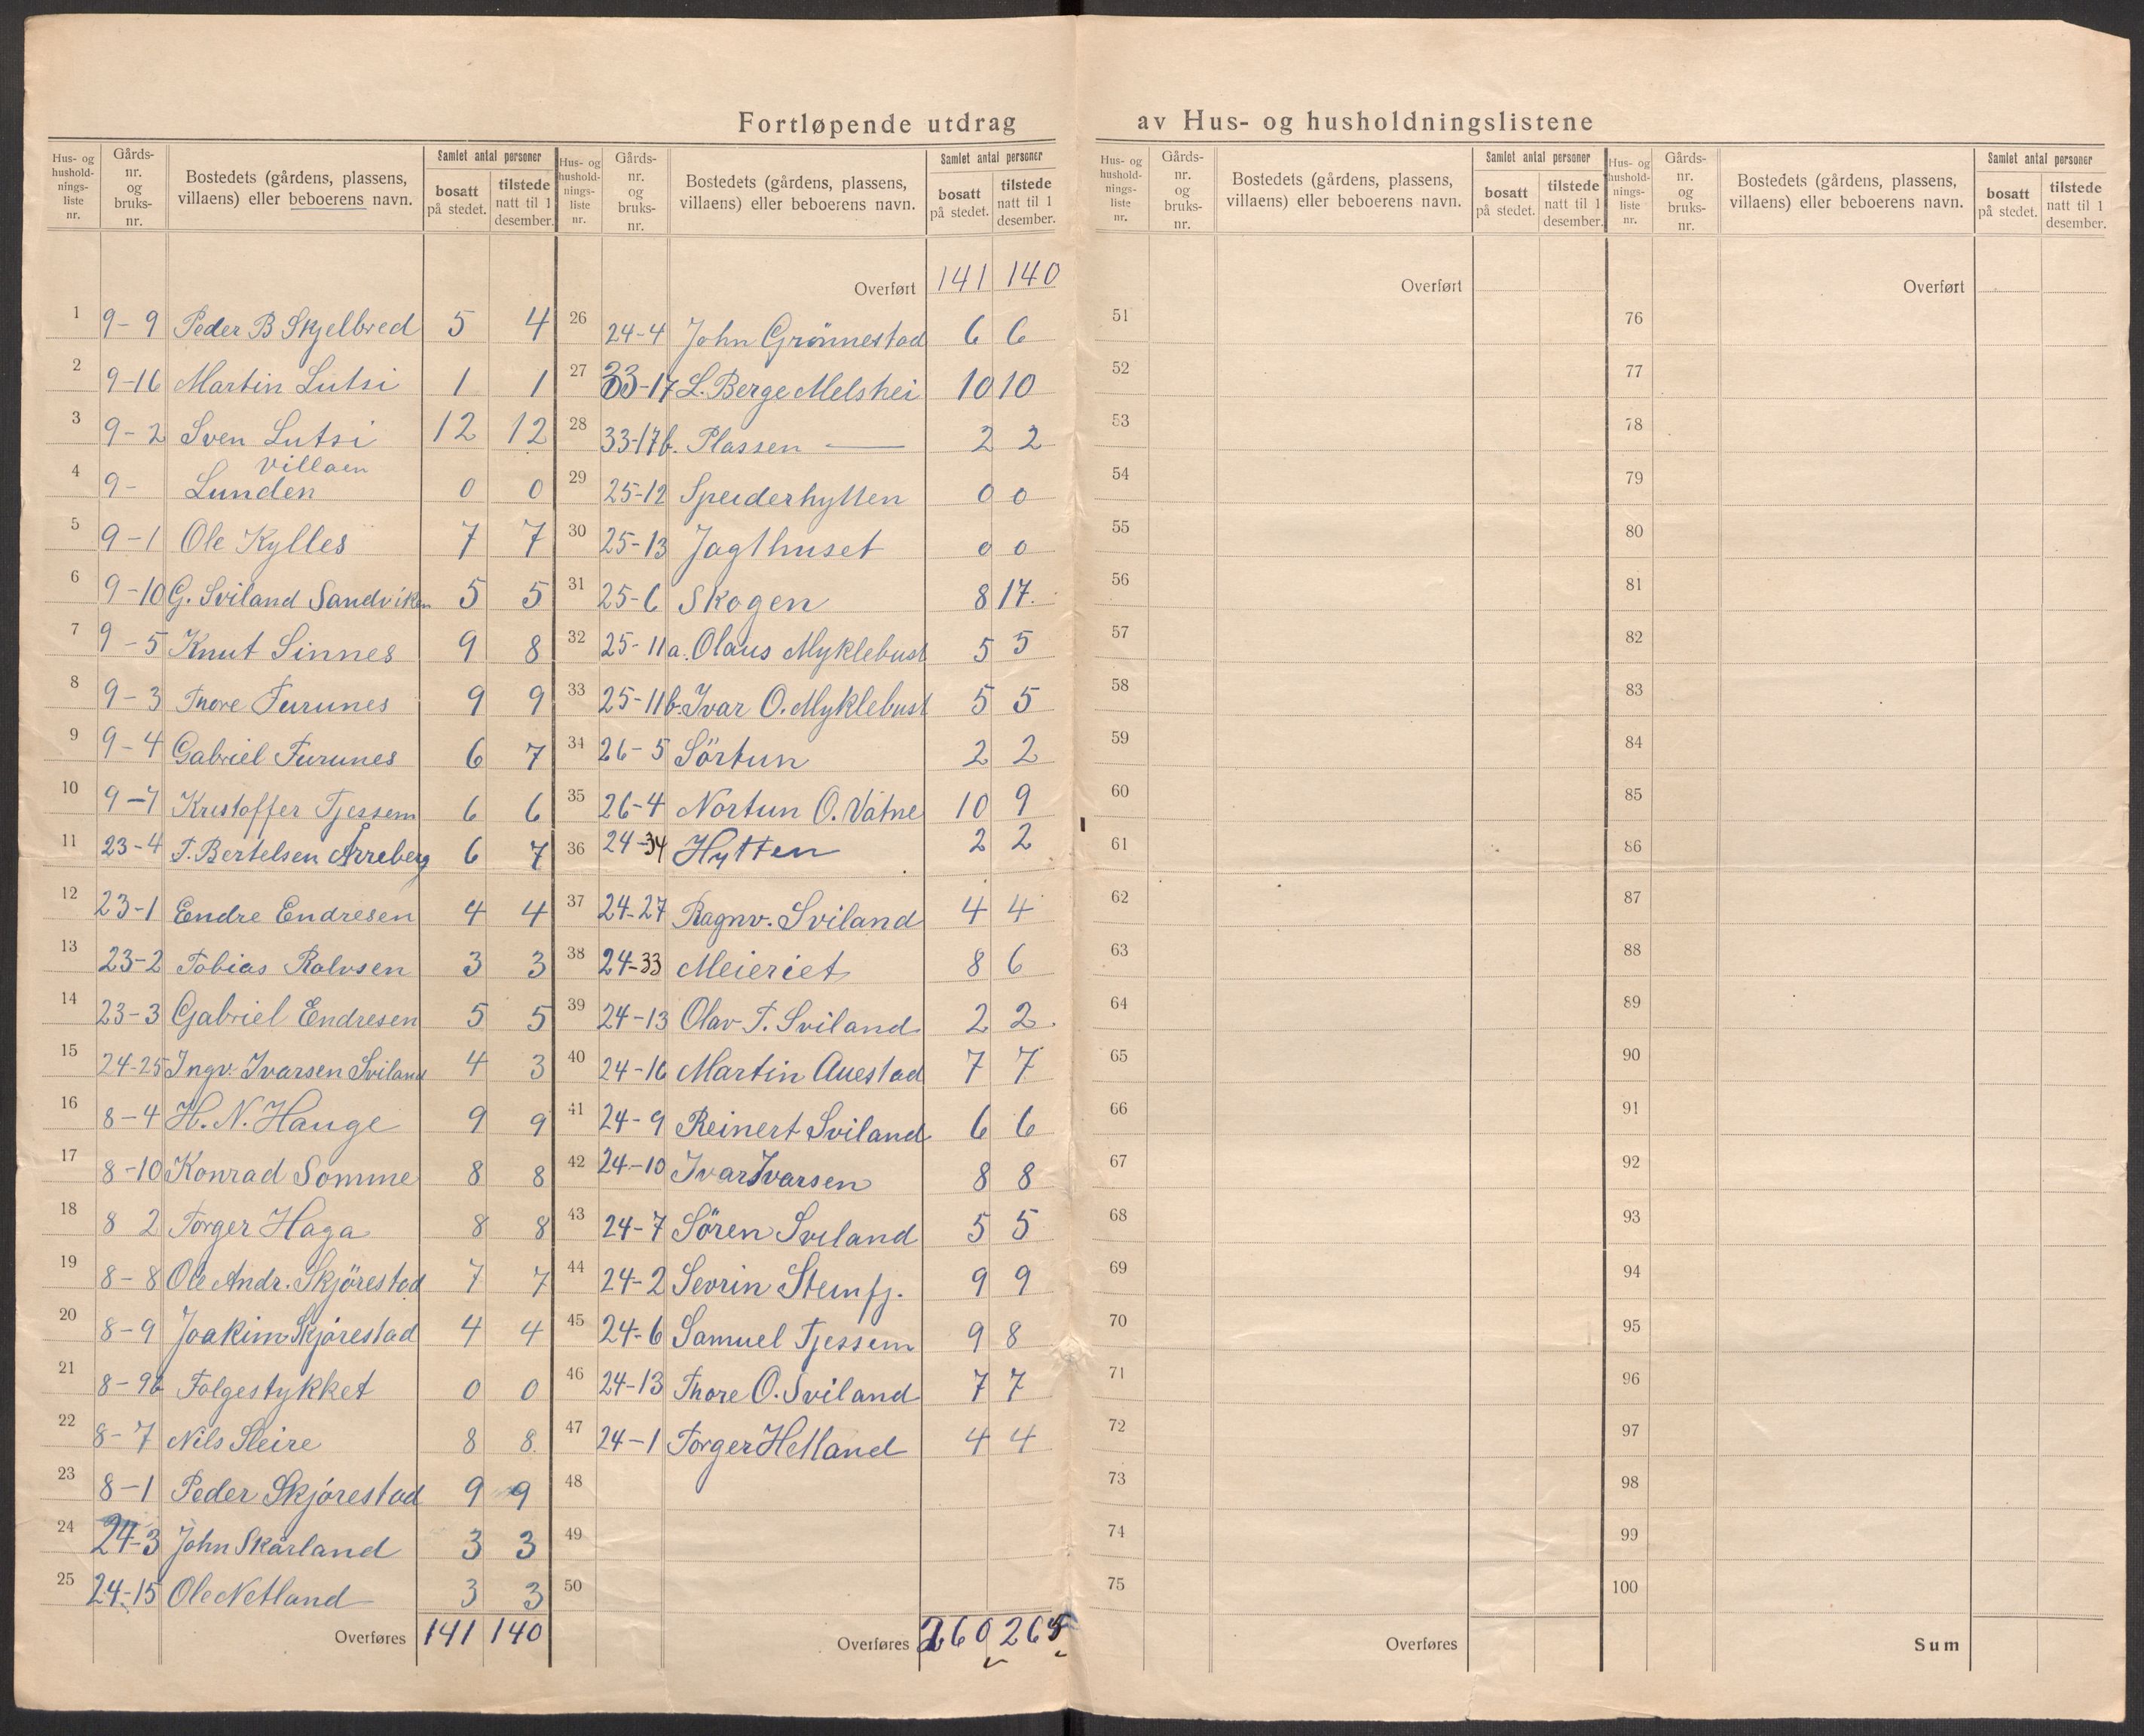 Fortløpende utdrag av Hus- og husholdningslistene
Hus- og hushold-nings-liste nr. Gårds-nr. og bruks-nr. Bostedets (gårdens, plassens, villaens) eller beboerens navn. Samlet antal personer bosatt på stedet. tilstede natt til 1 desember.
Hus- og hushold-nings-liste nr. Gårds-nr. og bruks-nr. Bostedets (gårdens, plassens, villaens) eller beboerens navn. Samlet antal personer bosatt på stedet. tilstede natt til 1 desember.
Hus- og hushold-nings-liste nr. Gårds-nr. og bruks-nr. Bostedets (gårdens, plassens, villaens) eller beboerens navn. Samlet antal personer bosatt på stedet. tilstede natt til 1 desember.
Hus- og hushold-nings-liste nr. Gårds-nr. og bruks-nr. Bostedets (gårdens, plassens, villaens) eller beboerens navn. Samlet antal personer bosatt på stedet. tilstede natt til 1 desember.
1 9-9 Peder B Skjelbred 5 4
2 9-16 Martin Lutsi 1 1
3 9-2 Sven Lutsi 12 12
4 9- Villaen Lunden 0 0
5 9-1 Ole Kylles 7 7
6 9-10 G. Sviland Sandviken 5 5
7 9-5 Knut Sinnes 9 8
8 9-3 Thore Furunes 9 9
9 9-4 Gabriel Furunes 6 7
10 9-7 Kristoffer Tjessem 6 6
11 23-4 T. Bertelsen Årreberg 6 7
12 23-1 Endre Endresen 4 4
13 23-2 Tobias Rolvsen 3 3
14 23-3 Gabriel Endresen 5 5
15 24-25 Ingv. Ivarsen Sviland 4 3
16 8-4 H. N. Hauge 9 9
17 8-10 Konrad Somme 8 8
18 8 2 Torger Haga 8 8
19 8-8 Ole Andr. Skjørestad 7 7
20 8-9 Joakim Skjørestad 4 4
21 8-9b Folgestykket 0 0
22 8-7 Nils Sleire 8 8.
23 8-1 Peder Skjørestad 9 9
24 24-3 John Skårland 3 3
25 24-15 Ole Netland 3 3
Overføres 141 140
Overført 141 140
26 24-4 John Grönnestad 6 6
27 33-17 L. Berge Melshei 10 10
28 33-17b. Plassen — 2 2
29 25-12 Speiderhytten 0 0
30 25-13 Jagthuset 0 0
31 25-6 Skogen 8 17.
32 25-11a. Olaus Myklebust 5 5
33 25-11b. Ivar O. Myklebust 5 5
34 26-5 Sörtun 2 2
35 26-4 Nortun O. Vatne 10 9
36 24-34 Hytten 2 2
37 24-27 Ragnv. Sviland 4 4
38 24-33 Meieriet 8 6
39 24-13 Olav T. Sviland 2 2.
40 24-16 Martin Auestad 7 7
41 24-9 Reinert Sviland 6 6
42 24-10 Ivar Ivarsen 8 8
43 24-7 Sören Sviland 5 5
44 24-2 Sevrin Stemfj. 9 9
45 24-6 Samuel Tjessem 9 8
46 24-13 Thore O. Sviland 7 7
47 24-1 Torger Helland 4 4
48
49
50
Overføres 260 265
Overført
51
52
53
54
55
56
57
58
59
60
61
62
63
64
65
66
67
68
69
70
71
72
73
74
75
Overføres
Overført
76
77
78
79
80
81
82
83
84
85
86
87
88
89
90
91
92
93
94
95
96
97
98
99
100
Sum